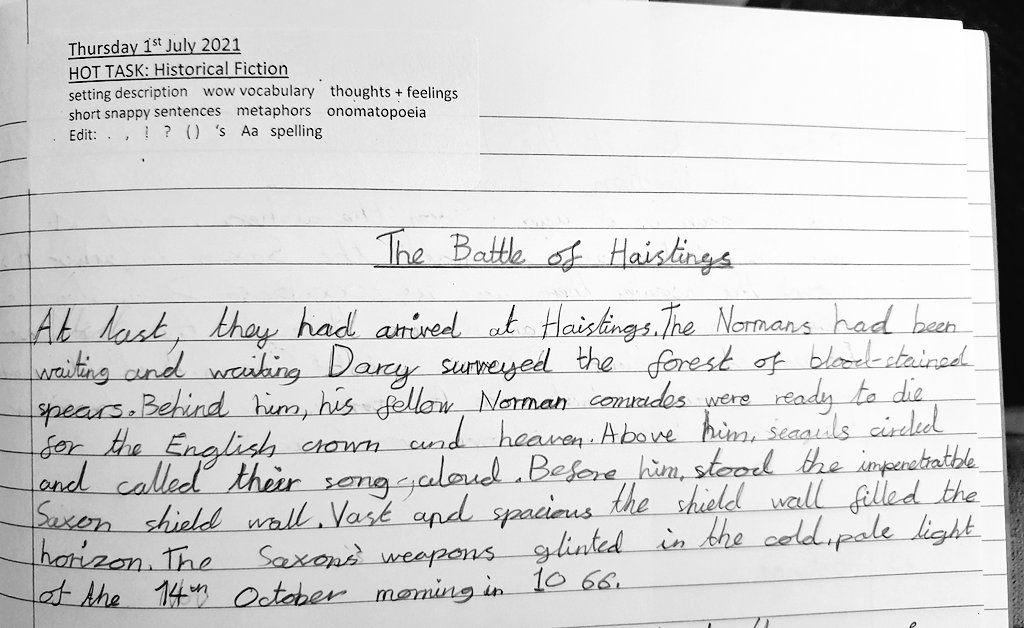 Thursday 1st July 2021
HOT TASK: Historical Fiction
setting description wow vocabulary thoughts + feelings
short snappy sentences metaphors onomatopoeia
Edit: . , ! ? () 's Aa spelling
The Battle of Haistings
At last, they had arrived at Haistings. The Normans had been
waiting and waiting Darcy surveyed the forest of blood-stained
spears. Behind him, his fellow Norman comrades were ready to die
for the English crown and heaven. Above him, seaguls circled
and called their song, aloud. Before him, stood the impenetratble
Saxon shield wall. Vast and spacious the shield wall filled the
horizon. The Saxons' weapons glinted in the cold, pale light
of the 14th October morning in 1066.